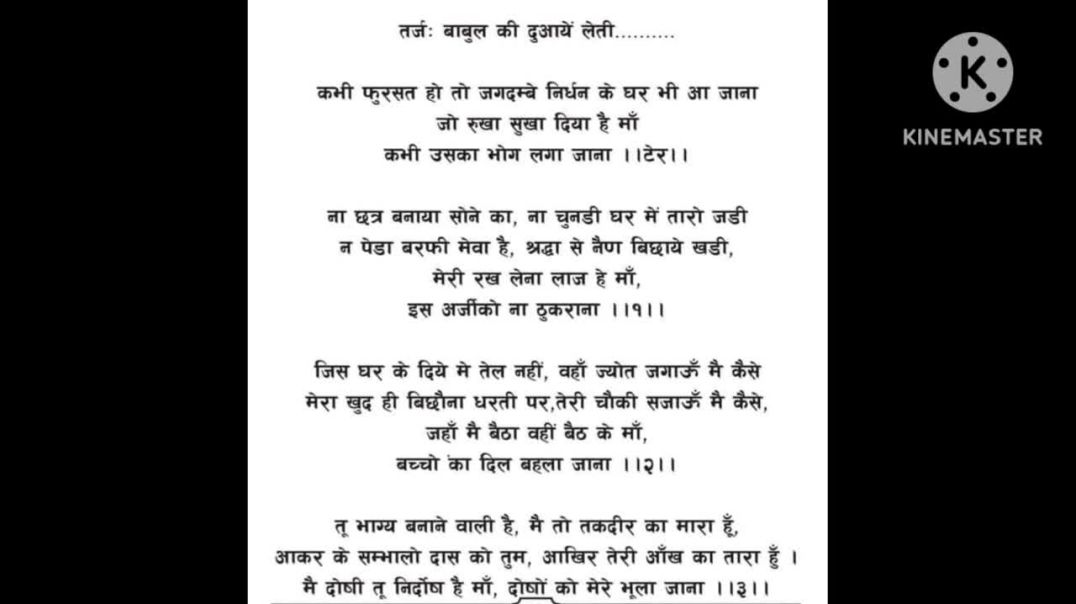 तर्जः बाबुल की दुआयें लेती..........
कभी फुरसत हो तो जगदम्बे निर्धन के घर भी आ जाना
जो रुखा सुखा दिया है माँ
कभी उसका भोग लगा जाना ।।टेर।।
ना छत्र बनाया सोने का, ना चुनडी घर में तारो जडी
न पेडा बरफी मेवा है, श्रद्धा से नैण बिछाये खडी,
मेरी रख लेना लाज हे माँ,
इस अर्जीको ना ठुकराना ।।१।।
जिस घर के दिये मे तेल नहीं, वहाँ ज्योत जगाऊँ मै कैसे
मेरा खुद ही बिछौना धरती पर,तेरी चौकी सजाऊँ मै कैसे,
जहाँ मै बैठा वहीं बैठ के माँ,
बच्चो का दिल बहला जाना ।।२।।
तू भाग्य बनाने वाली है, मै तो तकदीर का मारा हूँ,
आकर के सम्भालो दास को तुम, आखिर तेरी आँख का तारा हूँ ।
मै दोषी तू निर्दोष है माँ, दोषों को मेरे भूला जाना ।।३।।
K
KINEMASTER